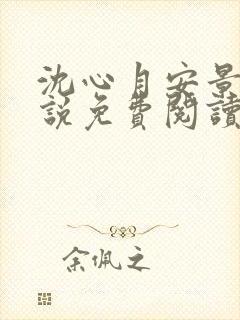 沈心自安景
說免費閱讀
余佩之